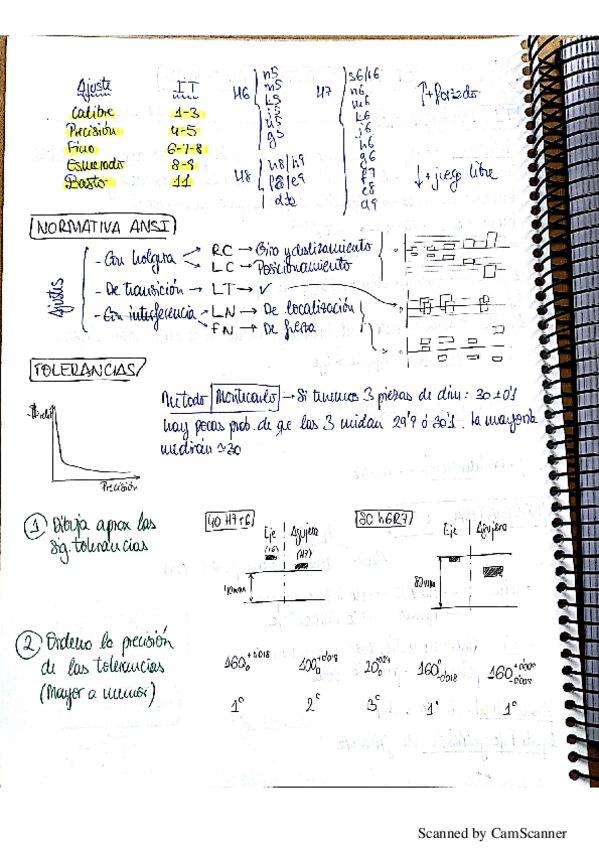 Ajuste IT
Calibre 1-3
Precisión 4-5
Fino 6-7-8
Esmerado 8-9
Basto 11
H6 n5 m5 k5 j5 h5 g5
H8 h8/h9 f8/e9 d10
H7 s6/r6 n6 m6 k6 j6 h6 g6 f7 e8 d9
↑+ forzado
↓+ juego libre
NORMATIVA ANSI
Ajustes
- Con holgura → RC → Giro y deslizamiento
→ LC → Posicionamiento
- De transición → LT → ✓
- Con interferencia → LN → De localización
→ FN → De fuerza
TOLERANCIAS
Método Montecarlo → Si tenemos 3 piezas de dim: 30±0'1
hay pocas prob. de que las 3 midan 29'9 ó 30'1. la mayoría
medirán ≈30
Precisión
① Dibuja aprox las
sig. tolerancias
40 H7 r6
Eje | Agujero
(r6) (H7)
40mm
80 h6R7
Eje | Agujero
80mm
② Ordena la precisión
de las tolerancias
(Mayor a menor)
160 +0'018 0
1º 2º 3º 1º 1º
Scanned by CamScanner